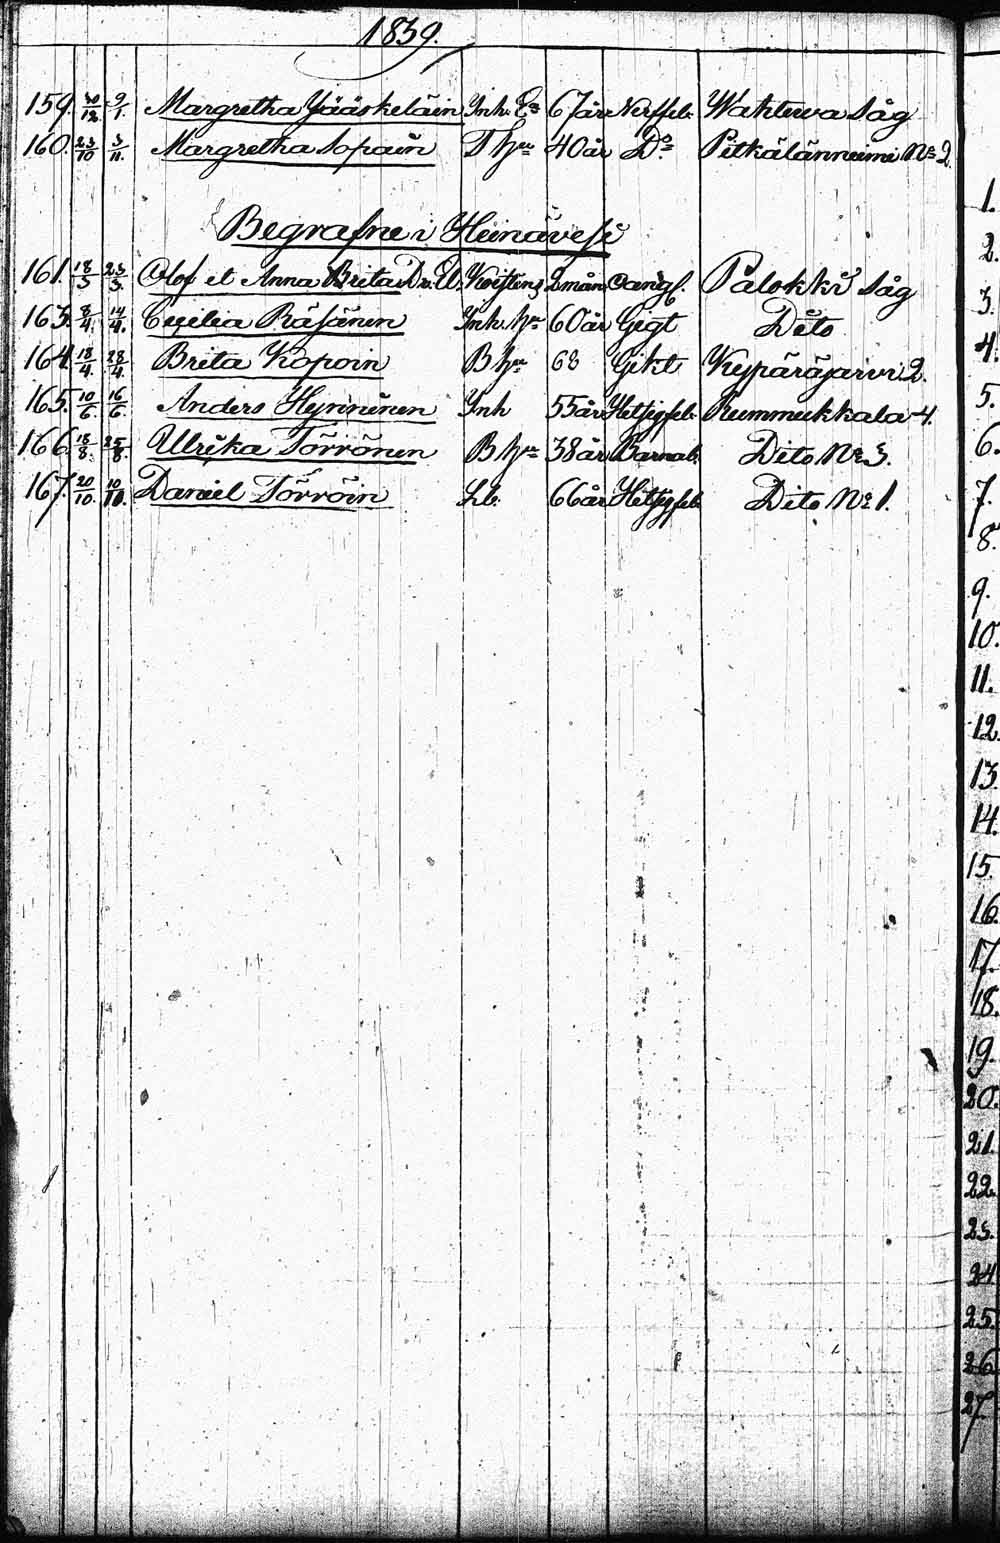 1839.
159. 30/12 9/1. Margretha Jääskeläin Inh. E:a 67 år Nerffeb. Wahtewa såg
160. 23/10 3/11. Margretha Sopain T hu 40 år D:o Pitkälänniemi N:o 2.
Begrafne i Heinävesi
161. 18/3 23/3. Olof et Anna Brita Dr. El. 2 mån. oangf. Palokki såg
163. 8/4 14/4. Cecilia Räsänen Inh. hu 60 år Gigt Dito
164. 18/4. 28/4. Brita Kopoin B hu 68 Gikt Kypäräjärvi 2.
165. 10/6. 16/6. Anders Hyvninen Inh 55 år Hetsigfeb. Rummukkala 4.
166. 18/8. 25/8. Ulrika Törrönen B hu 38 år Barnab. Dito N:o 3.
167. 20/10. 10/11. Daniel Törröin Lb. 66 år Hetsigfeb. Dito N:o 1.
1.
2.
3.
4.
5.
6.
7.
8.
9.
10.
11.
12.
13.
14.
15.
16.
17.
18.
19.
20.
21.
22.
23.
24
25.
26
27.